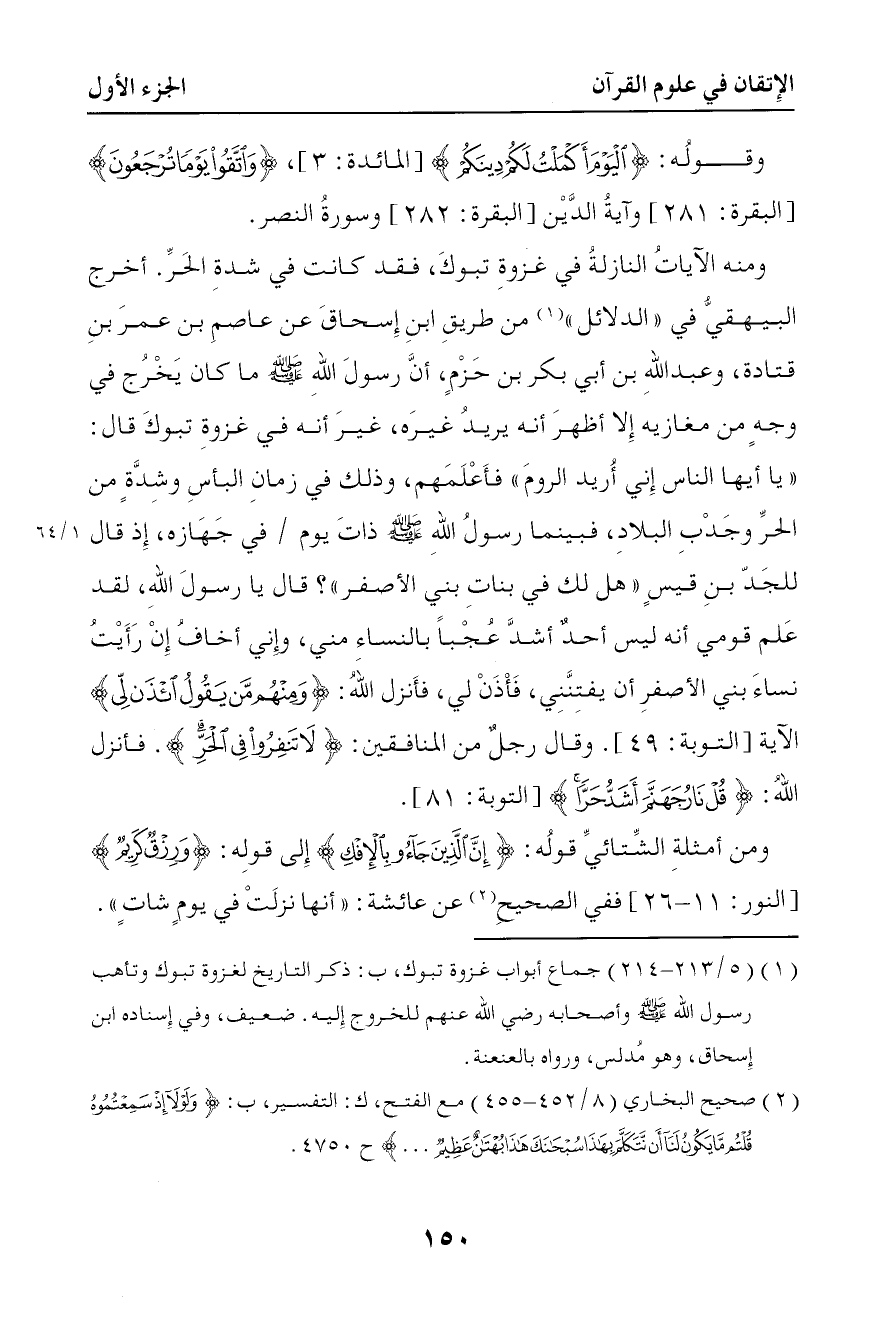 الإتقان في علوم القرآن الجزء الأول
وقـــولُه: ﴿ ٱلْيَوْمَ أَكْمَلْتُ لَكُمْ دِينَكُمْ ﴾ [المائدة: ٣]، ﴿وَٱتَّقُوا۟ يَوْمًا تُرْجَعُونَ﴾
[البقرة: ٢٨١] وآيةُ الدَّيْن [البقرة: ٢٨٢] وسورةُ النصر.
ومنه الآياتُ النازلةُ في غزوةِ تبوكَ، فقد كانت في شدةِ الحَرِّ. أخرج
البيهقيُّ في «الدلائل»(١) من طريقِ ابنِ إسحاقَ عن عاصمِ بن عمرَ بنِ
قتادة، وعبداللهِ بن أبي بكر بن حَزْمٍ، أنَّ رسولَ اللهِ ﷺ ما كان يَخْرُج في
وجهٍ من مغازيه إلا أظهرَ أنه يريدُ غيرَه، غيرَ أنه في غزوةِ تبوكَ قال:
«يا أيها الناس إني أُريد الرومَ» فأَعْلَمَهم، وذلك في زمانِ البأسِ وشدَّةٍ من
الحرِّ وجَدْبِ البلادِ، فبينما رسولُ اللهِ ﷺ ذاتَ يوم / في جَهَازه، إذ قال ٦٤/١
للجَدّ بنِ قيسٍ «هل لك في بناتِ بني الأصفر»؟ قال يا رسولَ اللهِ، لقد
عَلم قومي أنه ليس أحدٌ أشدَّ عُجْباً بالنساءِ مني، وإني أخافُ إنْ رَأَيْتُ
نساءَ بني الأصفرِ أن يفتنَّني، فَأْذَنْ لي، فأنزل اللهُ: ﴿وَمِنْهُم مَّن يَقُولُ ٱئْذَن لِّى﴾
الآية [التوبة: ٤٩]. وقال رجلٌ من المنافقين: ﴿ لَا تَنفِرُوا۟ فِى ٱلْحَرِّ ۗ ﴾. فأنزل
اللهُ: ﴿ قُلْ نَارُ جَهَنَّمَ أَشَدُّ حَرًّا ۚ ﴾ [التوبة: ٨١].
ومن أمثلةِ الشِّتائيِّ قولُه: ﴿ إِنَّ ٱلَّذِينَ جَآءُو بِٱلْإِفْكِ ﴾ إلى قوله: ﴿وَرِزْقٌ كَرِيمٌ ﴾
[النور: ١١-٢٦] ففي الصحيحِ(٢) عن عائشة: «أنها نزلَتْ في يومٍ شاتٍ».
(١) (٥/ ٢١٣-٢١٤) جماع أبواب غزوة تبوك، ب: ذكر التاريخ لغزوة تبوك وتأهب
رسول الله ﷺ وأصحابه رضي الله عنهم للخروج إليه. ضعيف، وفي إسناده ابن
إسحاق، وهو مُدلس، ورواه بالعنعنة.
(٢) صحيح البخاري (٨/ ٤٥٢-٤٥٥) مع الفتح، ك: التفسير، ب: ﴿ وَلَوْلَآ إِذْ سَمِعْتُمُوهُ
قُلْتُم مَّا يَكُونُ لَنَآ أَن نَّتَكَلَّمَ بِهَٰذَا سُبْحَٰنَكَ هَٰذَا بُهْتَٰنٌ عَظِيمٌ ... ﴾ ح ٤٧٥٠.
١٥٠